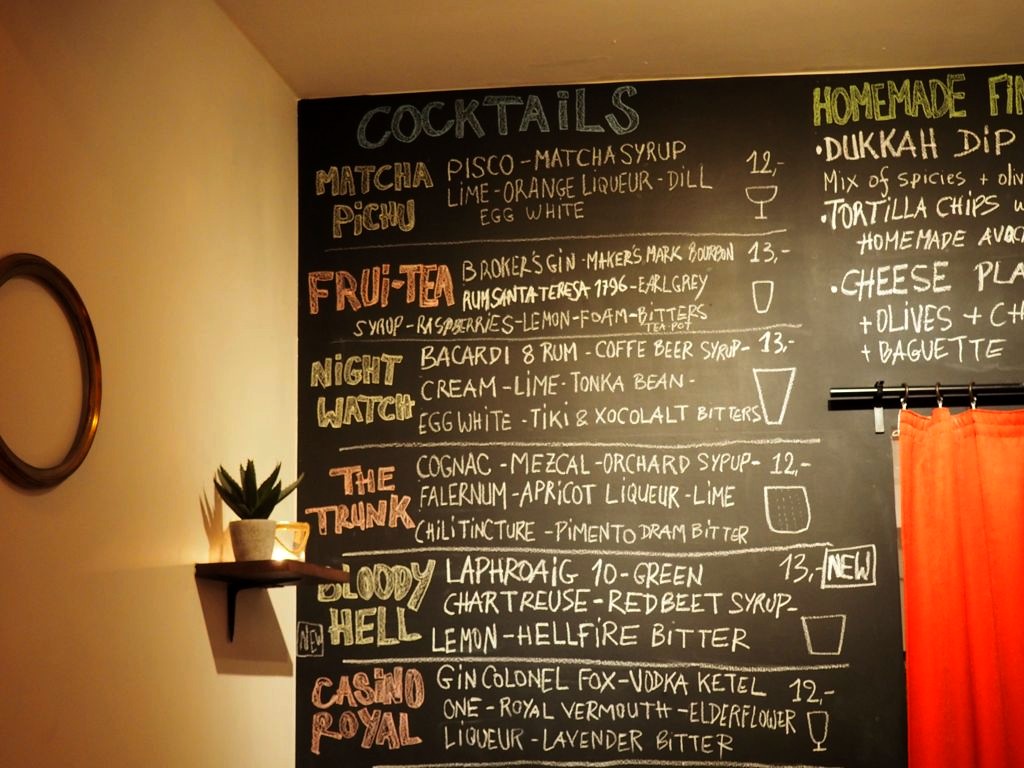 COCKTAILS
MATCHA PICHU
PISCO - MATCHA SYRUP 12,-
LIME - ORANGE LIQUEUR - DILL
EGG WHITE
FRUI-TEA
BROKER'S GIN - MAKER'S MARK BOURBON 13,-
RUM SANTA TERESA 1796 - EARL GREY
SYRUP - RASPBERRIES - LEMON - FOAM - BITTERS
TEA POT
NIGHT WATCH
BACARDI 8 RUM - COFFE BEER SYRUP - 13,-
CREAM - LIME - TONKA BEAN -
EGG WHITE - TIKI & XOCOLALT BITTERS
THE TRUNK
COGNAC - MEZCAL - ORCHARD SYPUP - 12,-
FALERNUM - APRICOT LIQUEUR - LIME
CHILI TINCTURE - PIMENTO DRAM BITTER
BLOODY HELL
NEW
LAPHROAIG 10 - GREEN 13,- NEW
CHARTREUSE - REDBEET SYRUP -
LEMON - HELLFIRE BITTER
CASINO ROYAL
GIN COLONEL FOX - VODKA KETEL 12,-
ONE - ROYAL VERMOUTH - ELDERFLOWER
LIQUEUR - LAVENDER BITTER
HOMEMADE FIN
• DUKKAH DIP
Mix of spicies + oliv
• TORTILLA CHIPS W
HOMEMADE AVOC
• CHEESE PLA
+ OLIVES + CH
+ BAGUETTE